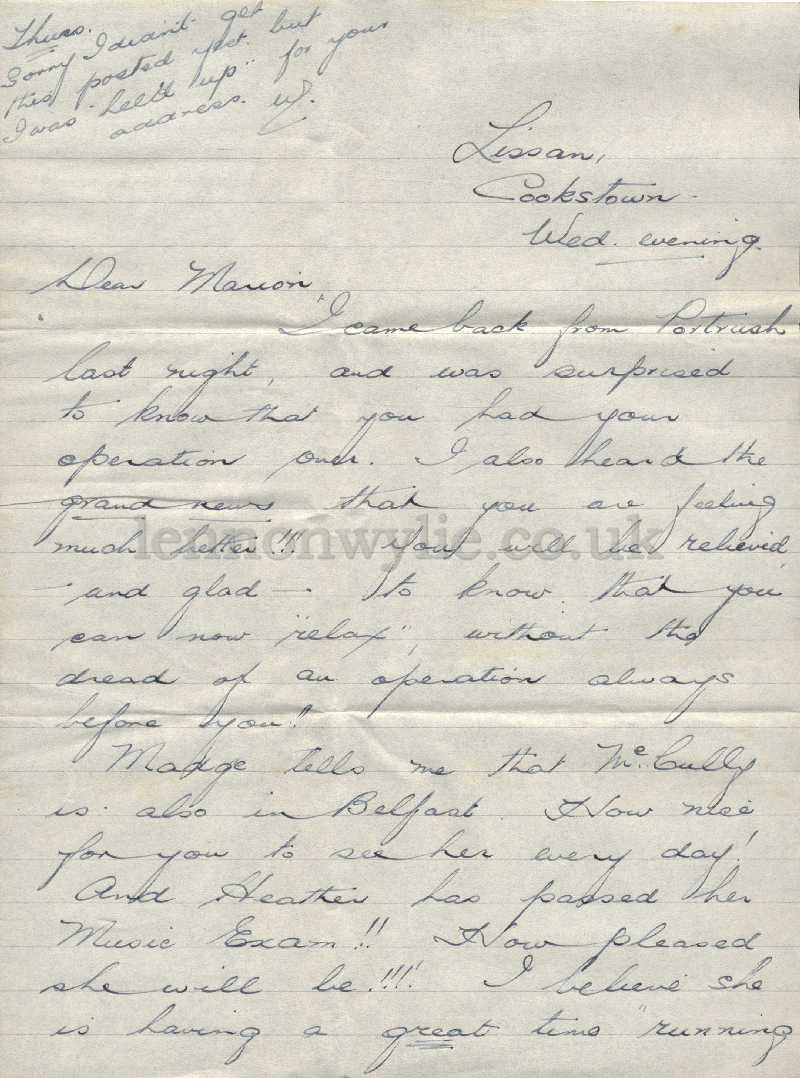 Thurs.
Sorry I didn't get
this posted yest. but
I was "held up" for your
address.
Lissan,
Cookstown.
Wed. evening.
Dear Marion
"I came back from Portrush
last night, and was surprised
to know that you had your
operation over. I also heard the
grand news that you are feeling
much better!!! You will be relieved,
- and glad - to know that you
can now "relax", without the
dread of an operation always
before you!!
Madge tells me that Mc.Cully
is also in Belfast. How nice
for you to see her every day!
And Heather has passed her
Music Exam!! How pleased
she will be!!!! I believe she
is having a great time "running
lennonwylie.co.uk